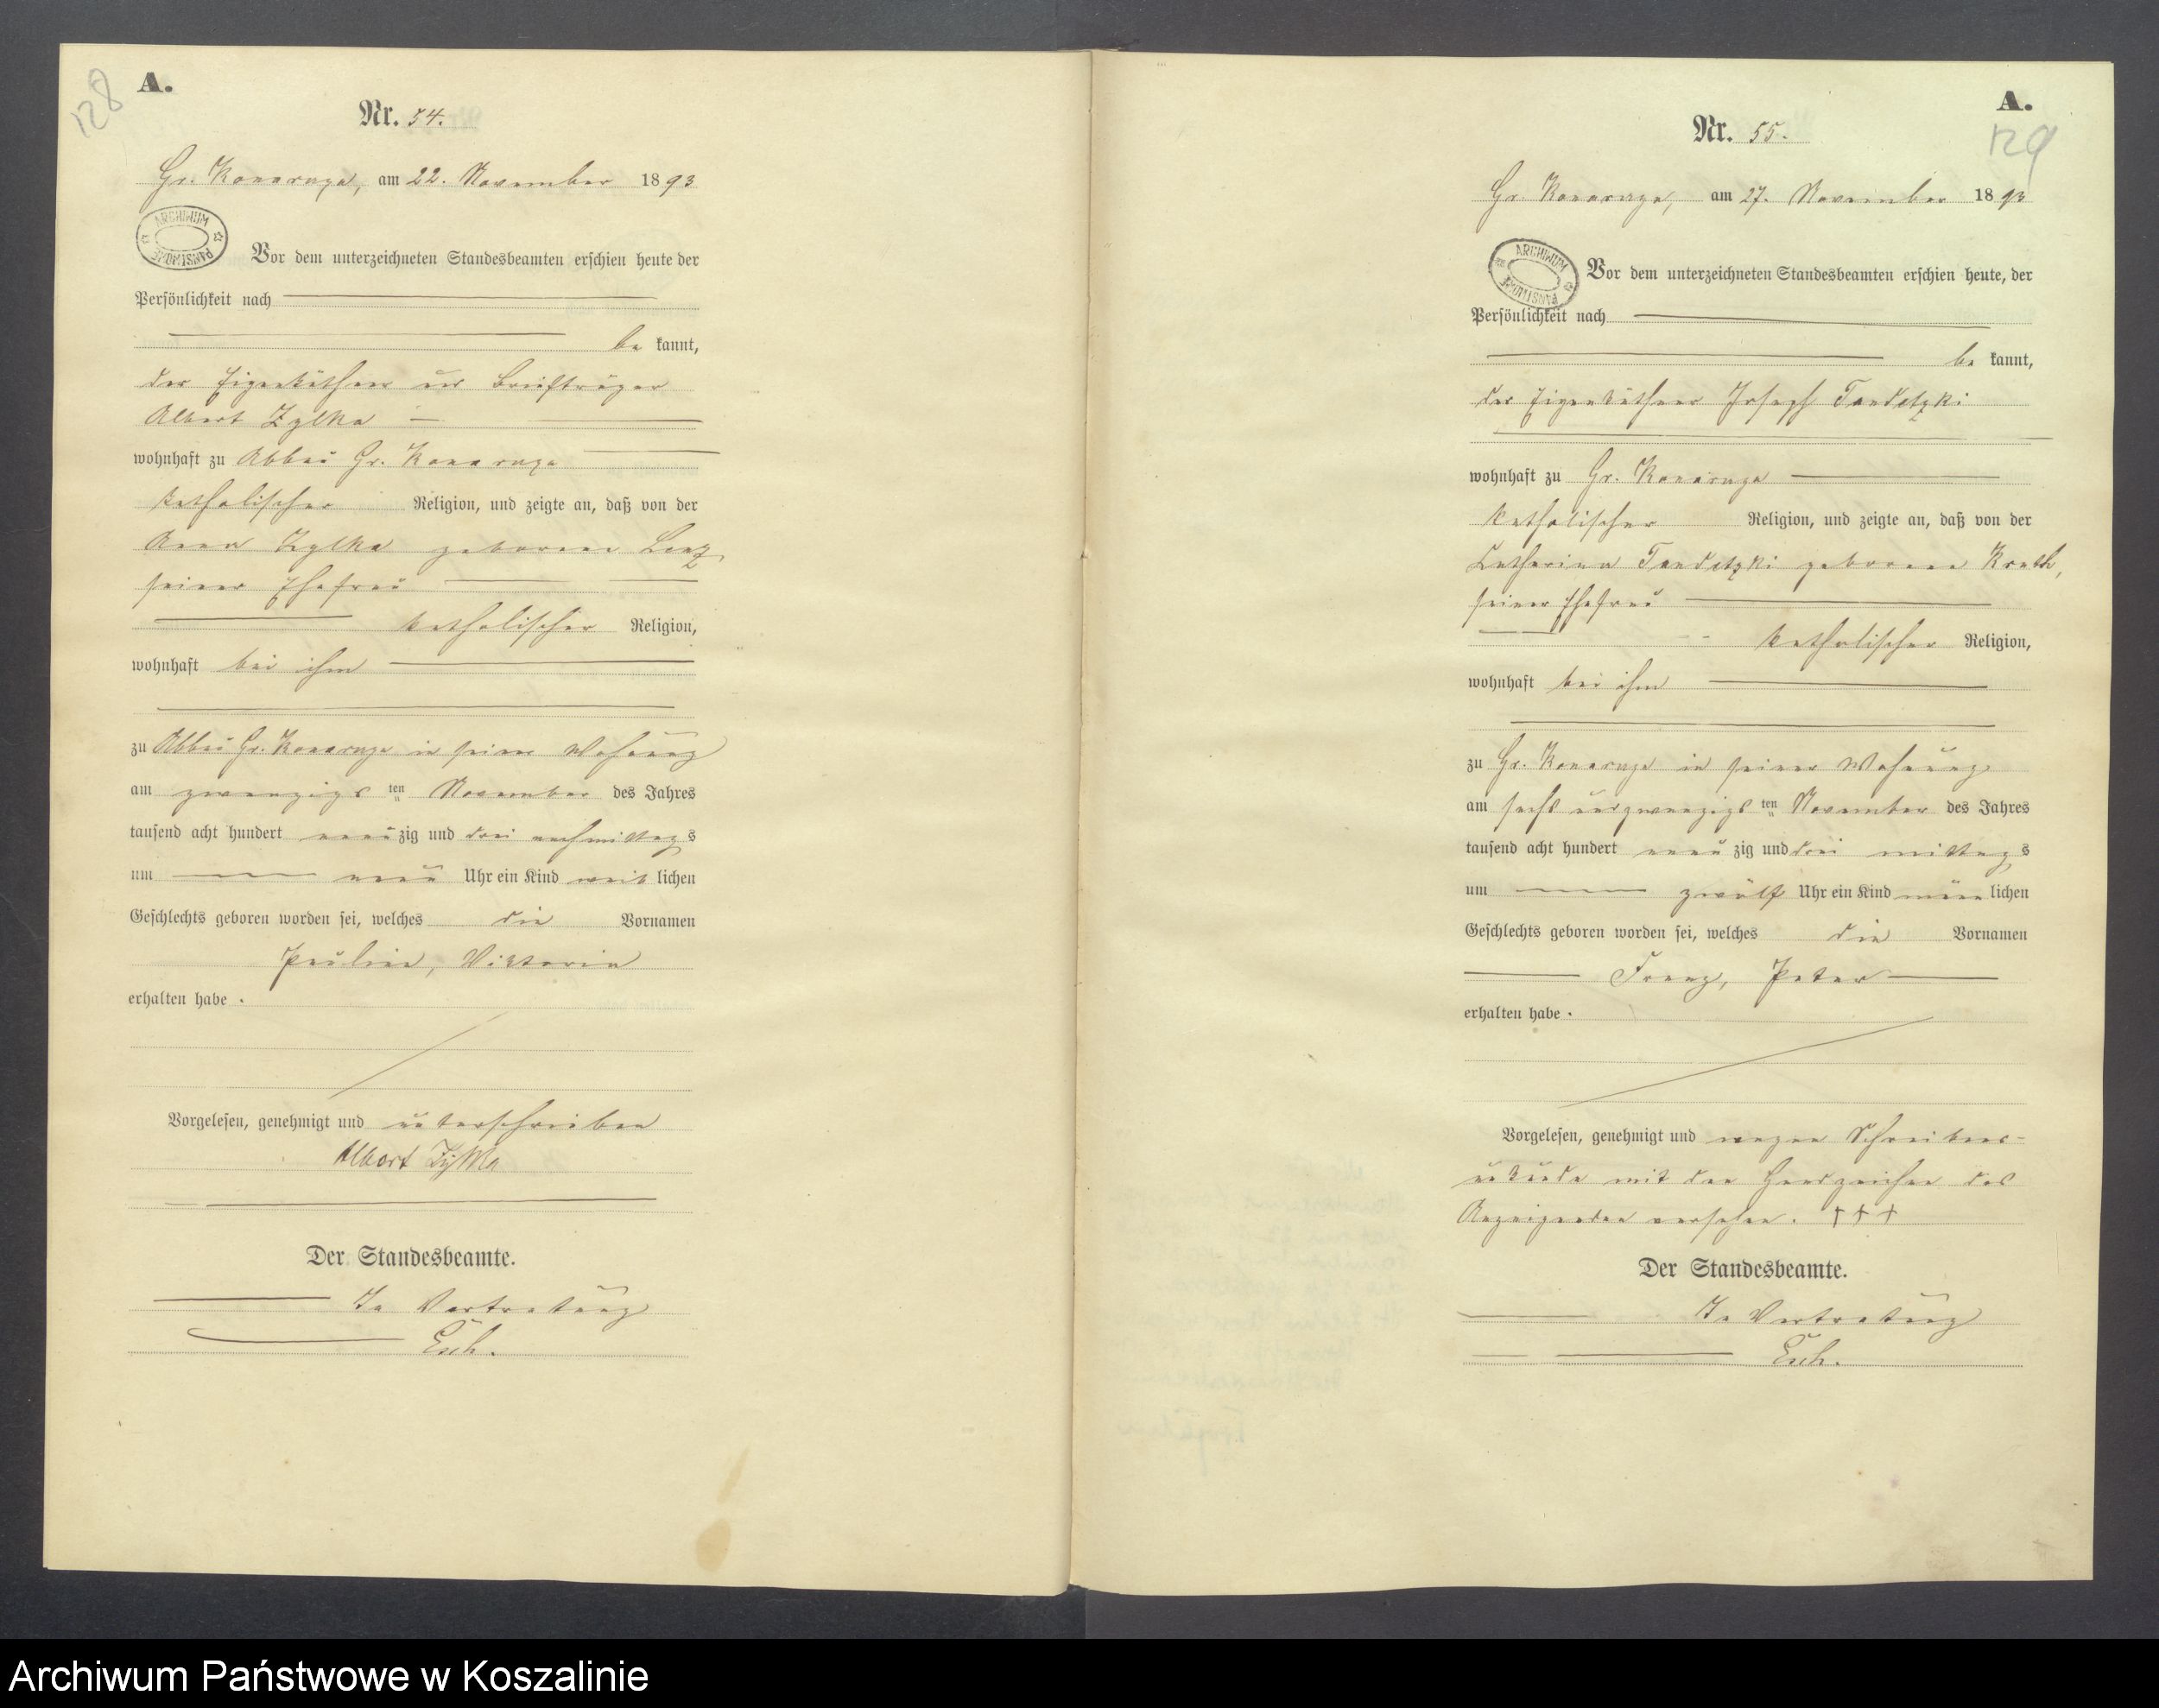 128
A.
Nr. 54.
Gr. Konarzyn, am 22. November 1893
ARCHIWUM PAŃSTWOWE
Vor dem unterzeichneten Standesbeamten erschien heute der
Persönlichkeit nach
be kannt,
der Eigenkäthner und Briefträger
Albert Zylka
wohnhaft zu Abbau Gr. Konarzyn
katholischer Religion, und zeigte an, daß von der
Anna Zylka geborene
seiner Ehefrau
katholischer Religion,
wohnhaft bei ihm
zu Abbau Gr. Konarzyn in seiner Wohnung
am zwanzigs ten November des Jahres
tausend acht hundert neunzig und drei nachmittags
um neun Uhr ein Kind weiblichen
Geschlechts geboren worden sei, welches die Vornamen
Pauline, Viktoria
erhalten habe.
Vorgelesen, genehmigt und unterschrieben
Albert Zylka
Der Standesbeamte.
In Vertretung
A.
129
Nr. 55.
Gr. Konarzyn, am 27. November 1893
ARCHIWUM PAŃSTWOWE
Vor dem unterzeichneten Standesbeamten erschien heute, der
Persönlichkeit nach
be kannt,
der Eigenkäthner Joseph Tandetzki
wohnhaft zu Gr. Konarzyn
katholischer Religion, und zeigte an, daß von der
Catharina Tandetzki geborene
seiner Ehefrau
katholischer Religion,
wohnhaft bei ihm
zu Gr. Konarzyn in seiner Wohnung
am sechs und zwanzigs ten November des Jahres
tausend acht hundert neunzig und drei mittags
um zwölf Uhr ein Kind männlichen
Geschlechts geboren worden sei, welches die Vornamen
Franz, Peter
erhalten habe.
Vorgelesen, genehmigt und wegen Schreibens-
unkunde mit den Handzeichen des
Anzeigenden versehen. † † †
Der Standesbeamte.
In Vertretung
Archiwum Państwowe w Koszalinie